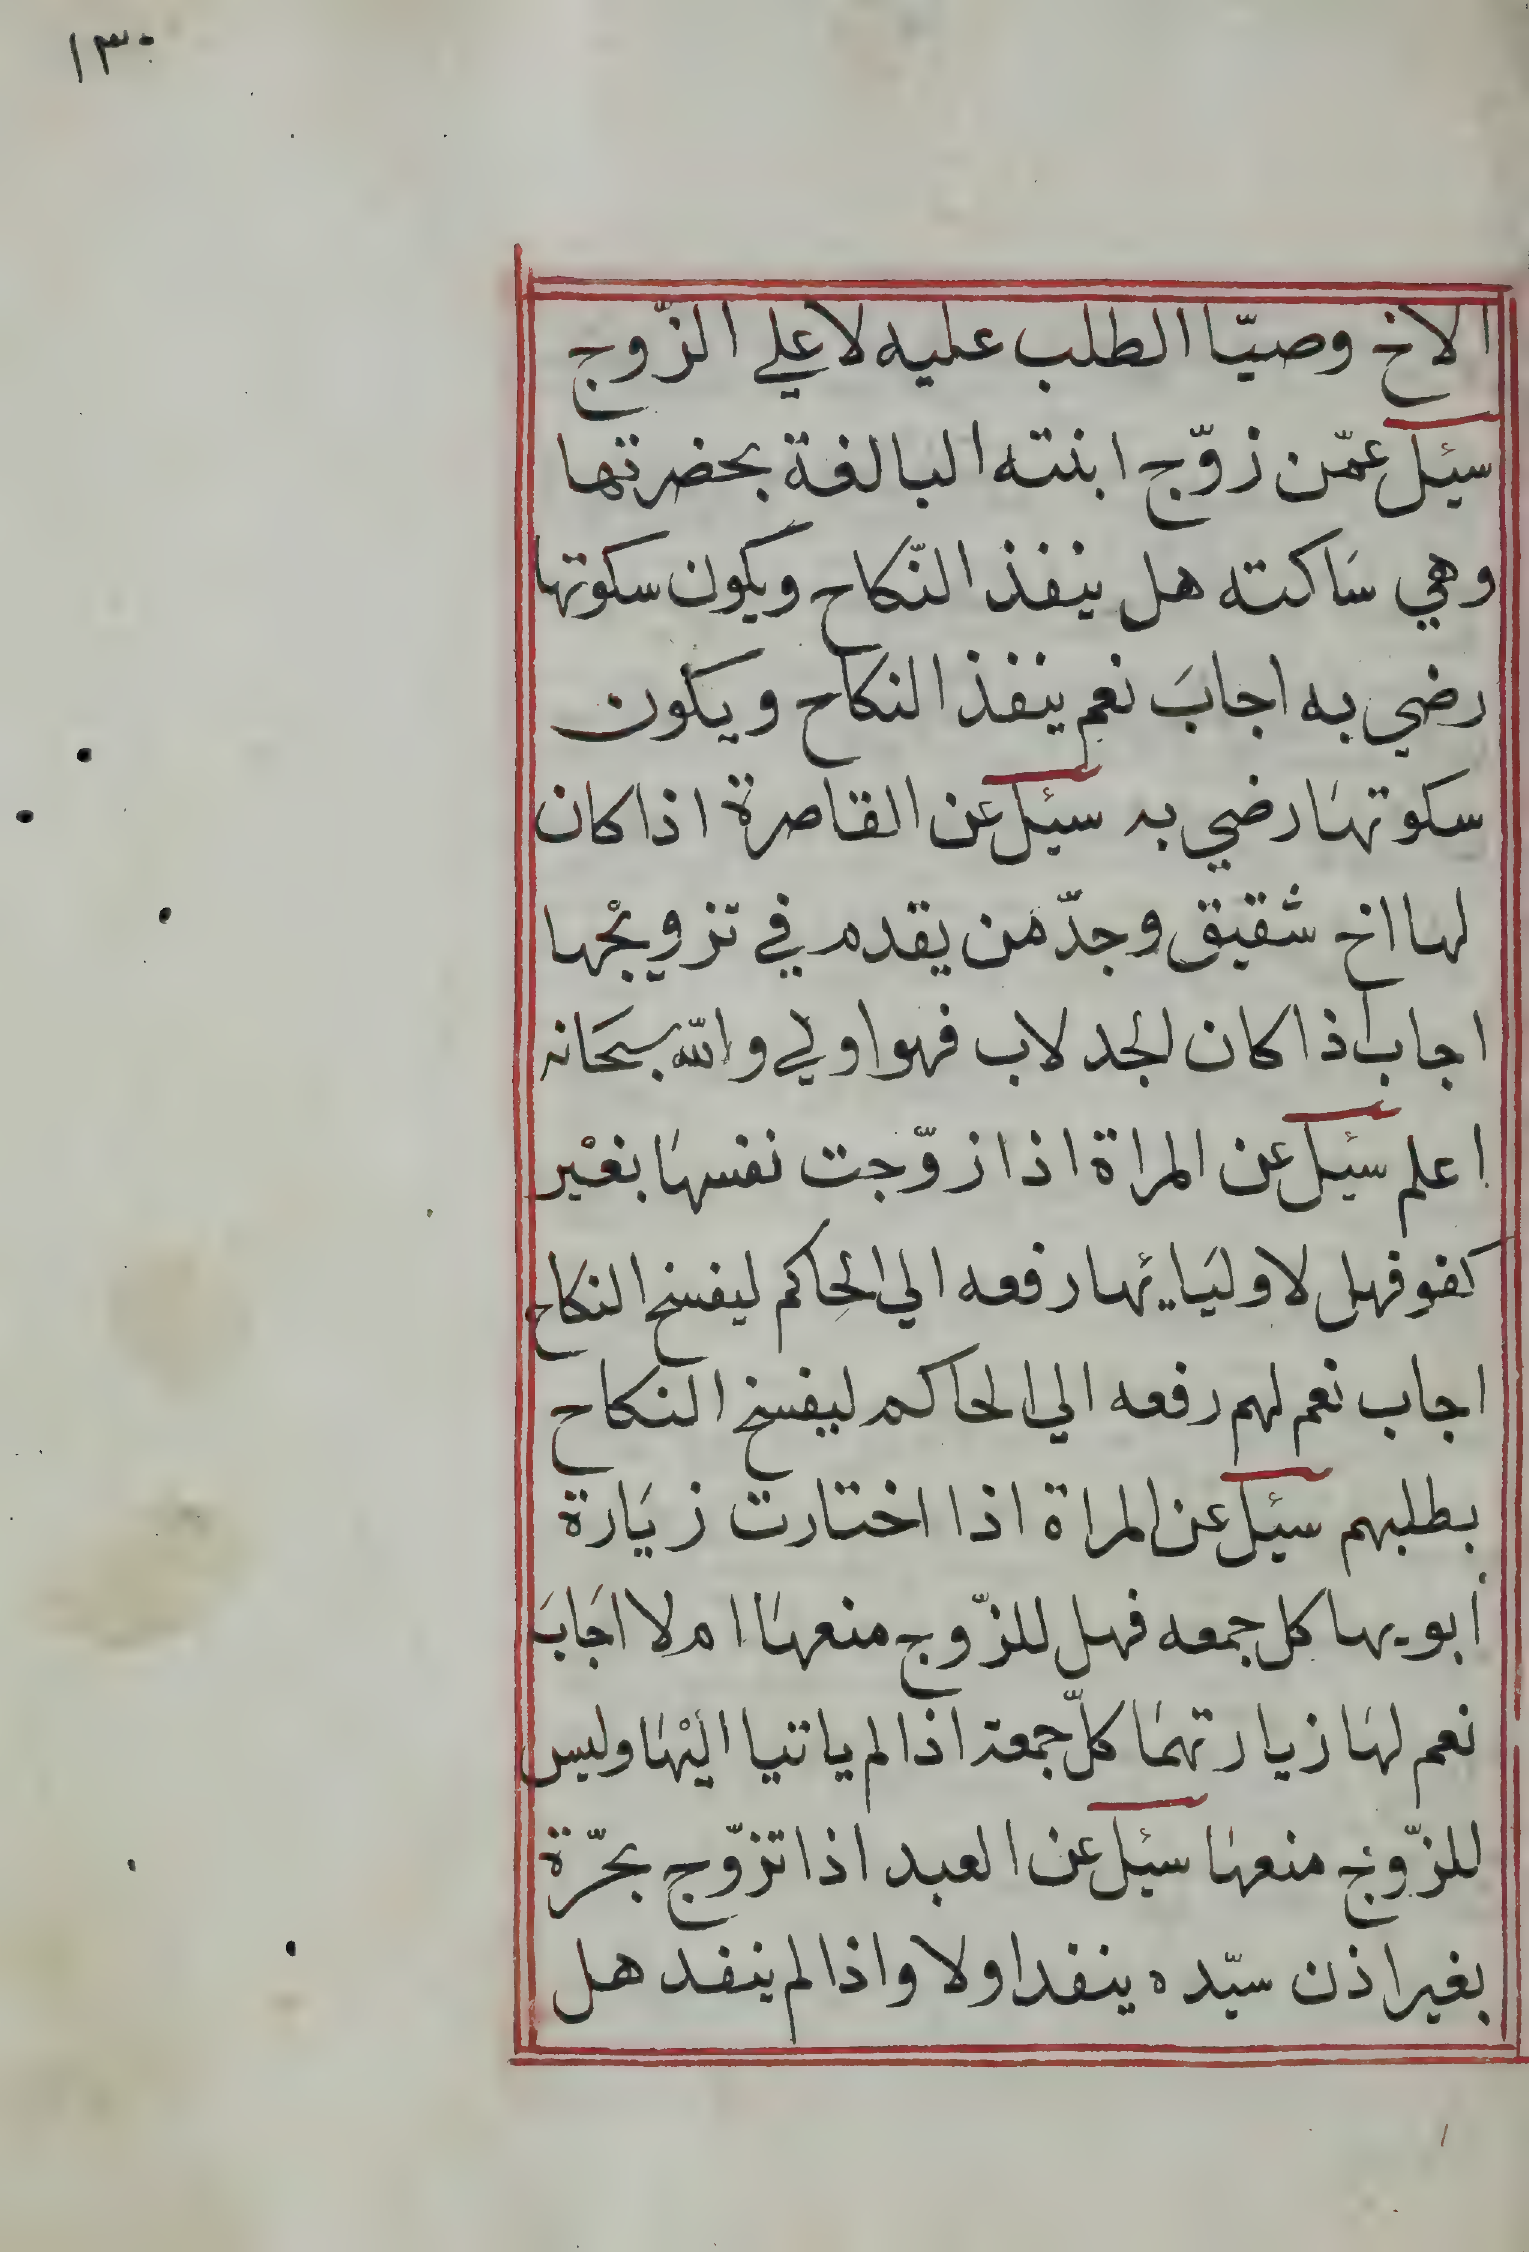 ١٣٠
الاخ وصيّا الطلب عليه لا علي الزّوج
سئل عمّن زوّج ابنته البالغة بحضرتها
وهي سَاكته هل ينفذ النّكاح ويكون سكوتها
رضي به اجابَ نعم ينفذ النكاح ويكون
سكوتهَا رضي به سئل عن القاصرة اذا كان
لها اخ شقيق وجدّ من يقدم في تزويجْها
اجاب اذا كان الجد لاب فهو اولي والله سبحَانه
اعلم سئل عن المراة اذا زوّجت نفسهَا بغيْر
كفو فهل لاوليَائها رفعه الي الحِاكم ليفسخ النكاح
اجاب نعم لهم رفعه الي الحاكم ليفسخ النكاح
بطلبهم سئل عن المراة اذا اختارت زيَارة
ابويها كل جمعه فهل للزّوج منعهَا ام لا اجَابَ
نعم لهَا زيارتهمَا كلّ جمعة اذا لم ياتيا اليْهَا وليس
للزّوج منعهَا سئل عن العبد اذا تزوّج بحرّة
بغير اذن سيّده ينفد اولا واذا لم ينفد هل